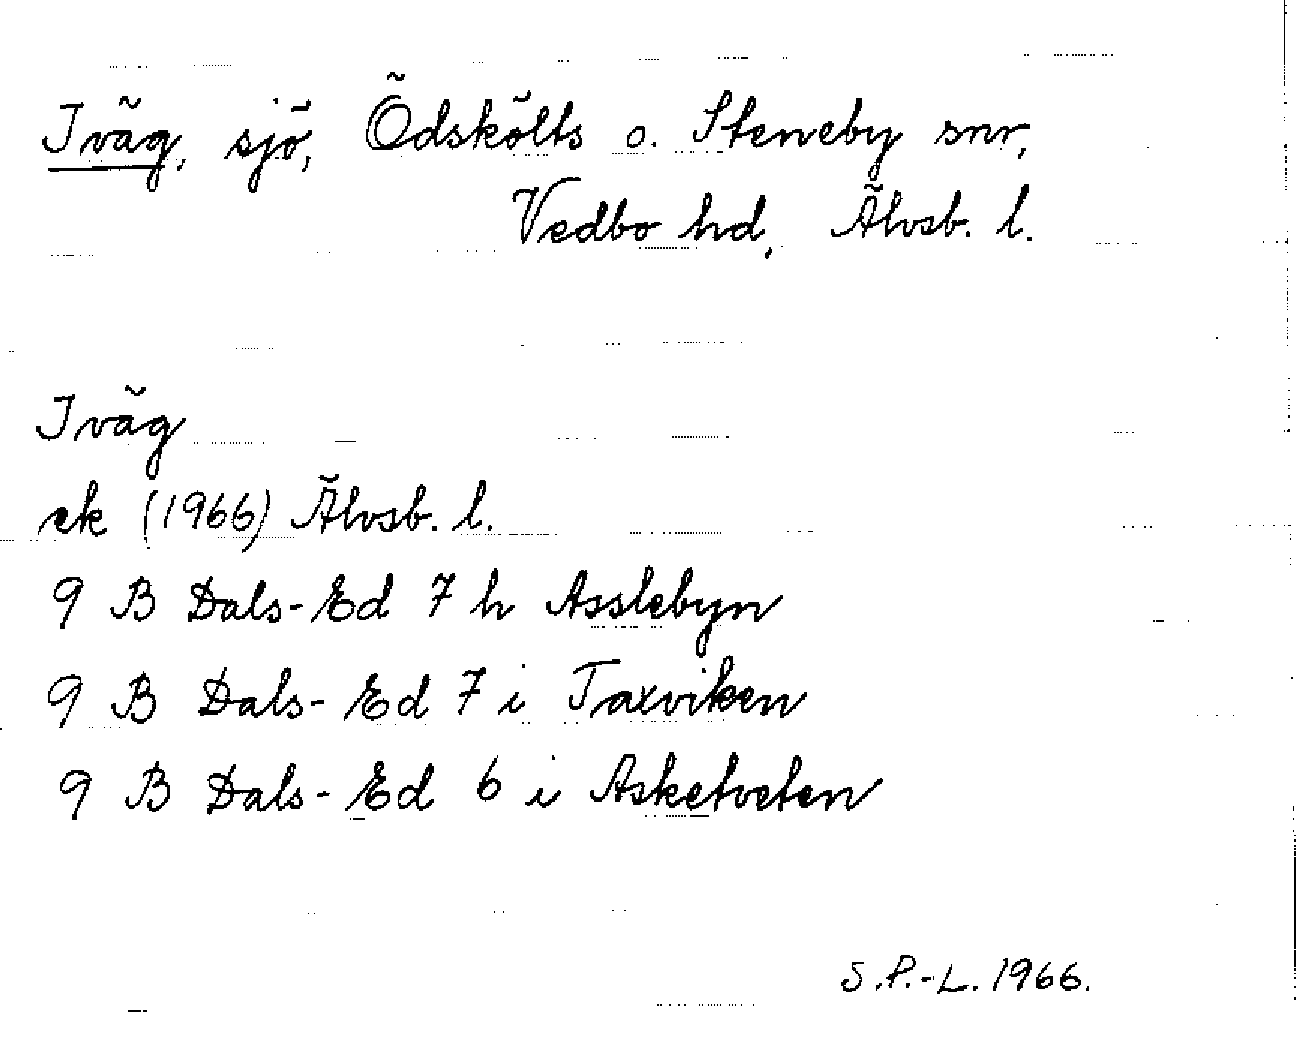 Iväg, sjö, Ödskölts o. Steneby snr,
Vedbo hd, Älvsb. l.
Iväg
ek (1966) Älvsb. l.
9 B Dals-Ed 7 h Asslebyn
9 B Dals-Ed 7 i Taxviken
9 B Dals-Ed 6 i Asketveten
S.P.-L. 1966.